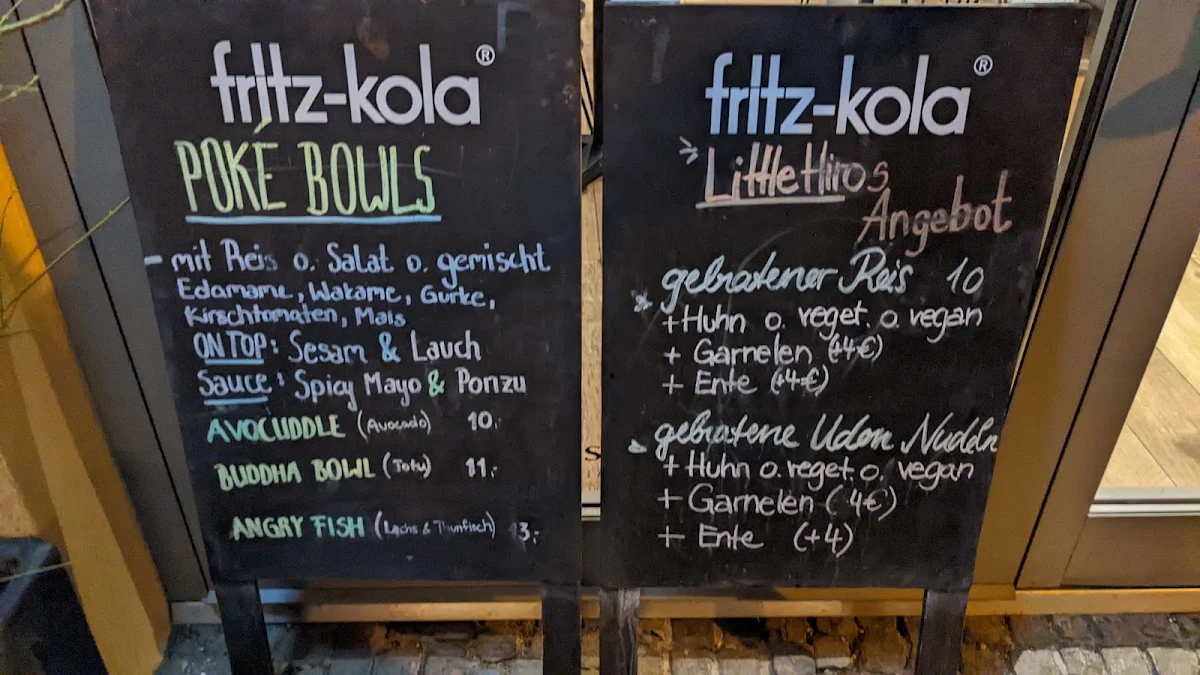 fritz-kola®
POKÉ BOWLS
- mit Reis o. Salat o. gemischt
Edamame, Wakame, Gurke,
Kirschtomaten, Mais
ON TOP: Sesam & Lauch
Sauce: Spicy Mayo & Ponzu
AVOCUDDLE (Avocado) 10,-
BUDDHA BOWL (Tofu) 11,-
ANGRY FISH (Lachs & Thunfisch) 13,-
fritz-kola®
Little Hiros
Angebot
gebratener Reis 10
+ Huhn o. veget. o. vegan
+ Garnelen (+4€)
+ Ente (+4€)
gebratene Udon Nudeln
+ Huhn o. veget. o. vegan
+ Garnelen (4€)
+ Ente (+4)